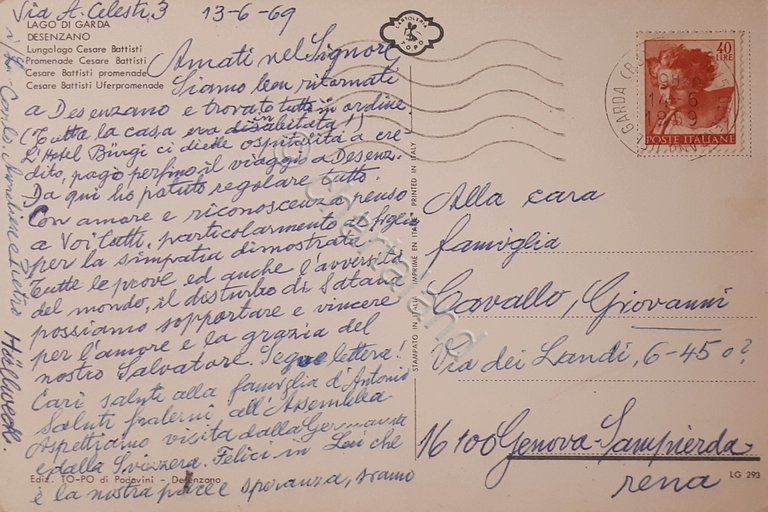 Via A. Celesti, 3 13-6-69
LAGO DI GARDA
DESENZANO
Lungolago Cesare Battisti
Promenade Cesare Battisti
Cesare Battisti promenade
Cesare Battisti Uferpromenade
Amati nel Signore
Siamo ben ritornati
a Desenzano e trovato tutto in ordine
(Tutta la casa era disabitata!)
L'Hotel Bürgi ci diede ospitalità a cre-
dito, pagò perfino il viaggio a Desenz.
Da qui ho potuto regolare tutto.
Con amore e riconoscenza penso
a Voi tutti, particolarmente ai figli
per la simpatia dimostrata.
Tutte le prove ed anche l'avversità
del mondo, il disturbo di Satana
possiamo sopportare e vincere
per l'amore e la grazia del
nostro Salvatore. Segue lettera!
Cari saluti alla famiglia d'Antonio
Saluti fraterni all'Assemblea
Aspettiamo visita dalla Germania
e dalla Svizzera. Felici in Lui che
è la nostra pace e speranza, siamo
Ediz. TO-PO di Podavini - Desenzano
CARTOLERIA
TOPO
STAMPATO IN ITALIA IMPRIMÉ EN ITALIE PRINTED IN ITALY
40
LIRE
POSTE ITALIANE
GARDA
14-6
1969
Alla cara
famiglia
Cavallo, Giovanni
Via dei Landi, 6-45 o?
16100 Genova-Sampierda
rena
LG 293
chartaland